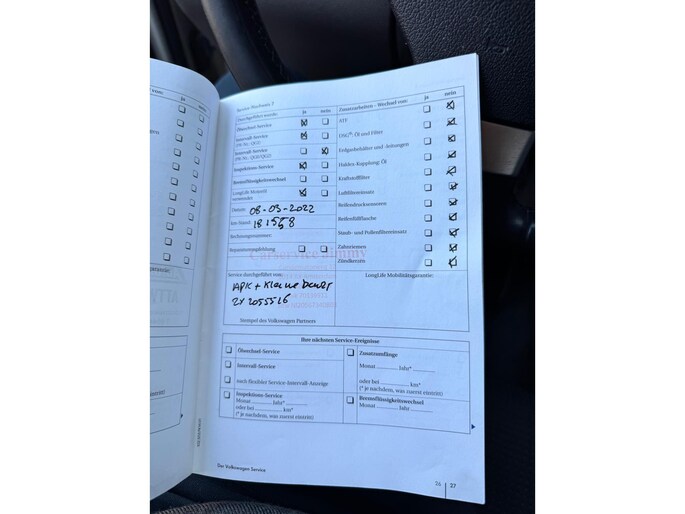 von:
ja
nein
Service-Nachweis 7
Durchgeführt wurde:
ja
nein
Ölwechsel-Service
Intervall-Service
(PR-Nr.: QG1)
Intervall-Service
(PR-Nr.: QG0/QG2)
Inspektions-Service
Bremsflüssigkeitswechsel
LongLife Motoröl
verwendet:
Datum: 08-03-2022
km-Stand:
Rechnungsnummer:
Reparaturempfehlung
Carservice Jimmy
Service durchgeführt von:
APK + kleine beurt
2x2055526
Stempel des Volkswagen Partners
Zusatzarbeiten - Wechsel von:
ja
nein
ATF
DSG®: Öl und Filter
Erdgasbehälter und -leitungen
Haldex-Kupplung: Öl
Kraftstofffilter
Luftfiltereinsatz
Reifendrucksensoren
Reifenfüllflasche
Staub- und Pollenfiltereinsatz
Zahnriemen
Zündkerzen
LongLife Mobilitätsgarantie:
Ihre nächsten Service-Ereignisse
Ölwechsel-Service
Intervall-Service
nach flexibler Service-Intervall-Anzeige
Inspektions-Service
Monat ............ Jahr* ............
oder bei ............ km*
(* je nachdem, was zuerst eintritt)
Zusatzumfänge
Monat ............ Jahr* ............
oder bei ............ km*
(* je nachdem, was zuerst eintritt)
Bremsflüssigkeitswechsel
Monat ............ Jahr ............
Zur Volkswagen Service
26 | 27